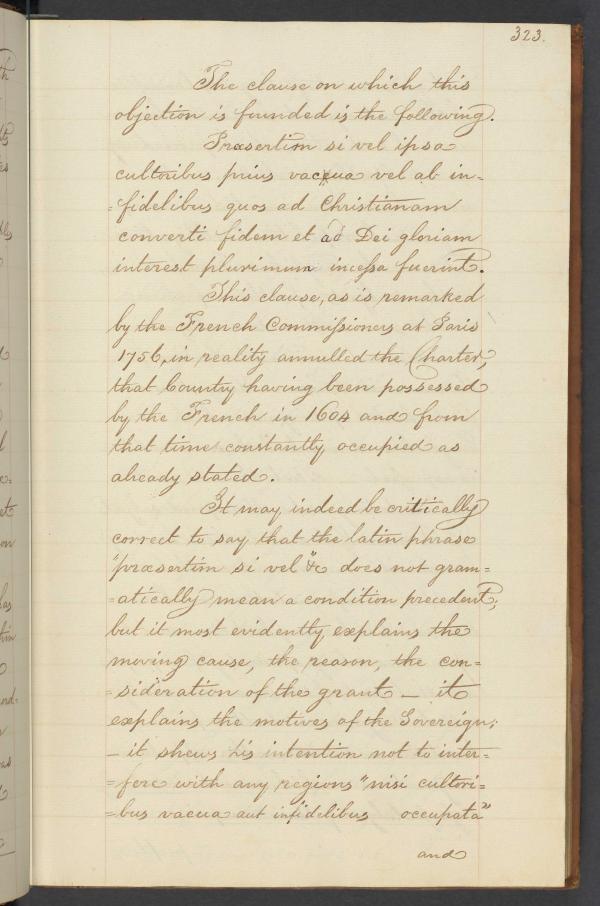 323.
The clause on which this
objection is founded is the following.
Præsertim si vel ipsa
cultoribus prius vacua vel ab in=
=fidelibus quos ad Christianam
converti fidem et ad Dei gloriam
interest plurimum incessa fuerint.
This clause, as is remarked
by the French Commissioners at Paris
1756, in reality annulled the Charter,
that Country having been possessed
by the French in 1604 and from
that time constantly occupied as
already stated.
It may indeed be critically
correct to say that the latin phrase
"præsertim si vel" &c does not gram=
=atically mean a condition precedent;
but it most evidently explains the
moving cause, the reason, the con=
=sideration of the grant — it
explains the motives of the Sovereign;
— it shews his intention not to inter=
=fere with any regions "nisi cultori=
=bus vacua aut infidelibus occupata"
and